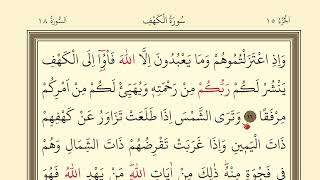 الجزء ١٥ سورة الكهف السورة ١٨
وَإِذِ اعْتَزَلْتُمُوهُمْ وَمَا يَعْبُدُونَ إِلَّا اللّٰهَ فَأْوُٓا إِلَى الْكَهْفِ
يَنْشُرْ لَكُمْ رَبُّكُمْ مِنْ رَحْمَتِهِ وَيُهَيِّئْ لَكُمْ مِنْ أَمْرِكُمْ
مِرْفَقًا ١٦ وَتَرَى الشَّمْسَ إِذَا طَلَعَتْ تَزَاوَرُ عَنْ كَهْفِهِمْ
ذَاتَ الْيَمِينِ وَإِذَا غَرَبَتْ تَقْرِضُهُمْ ذَاتَ الشِّمَالِ وَهُمْ
فِي فَجْوَةٍ مِنْهُ ذٰلِكَ مِنْ اٰيَاتِ اللّٰهِ مَنْ يَهْدِ اللّٰهُ فَهُوَ